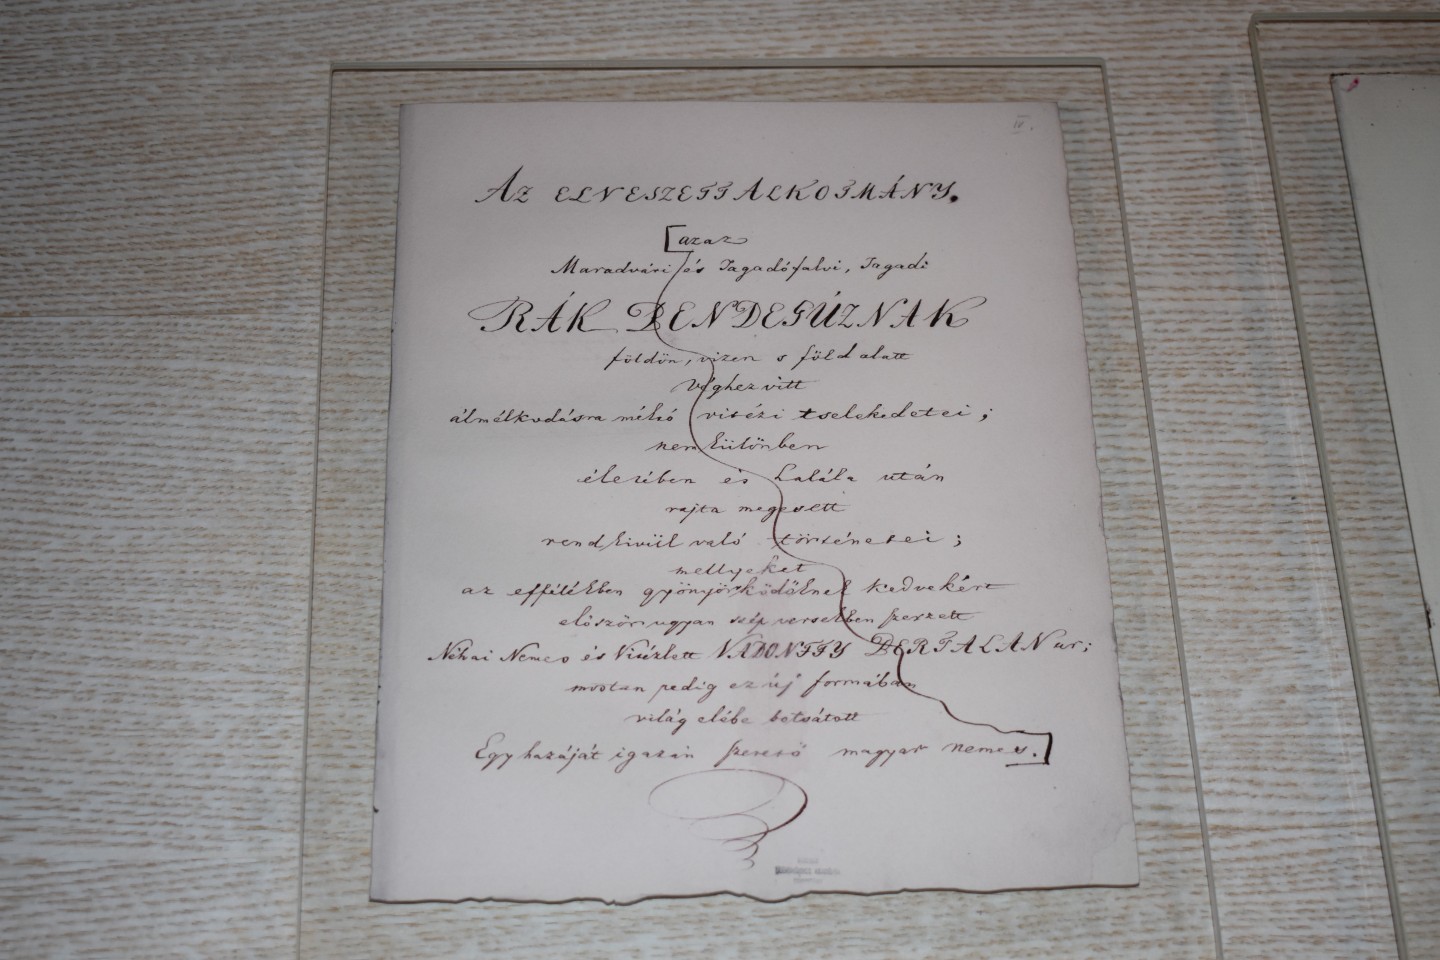 IV.
AZ ELVESZETT ALKOTMÁNY.
[azaz
Maradvári és Tagadófalvi, Tagadi
RÁK BENDEGÚZNAK
földön, vizen s föld alatt
véghez vitt
álmélkodásra méltó vitézi tselekedetei;
nem különben
életében és halála után
rajta megesett
rendkivül való történetei;
mellyeket
az effélékben gyönyörködőknek kedvekért
először ugyan szép versekben szerzett
Néhai Nemes és Vitézlett VADONFFY BERTALAN ur;
mostan pedig ez új formában
világ elébe botsátott
Egy hazáját igazán szerető magyar nemes.]